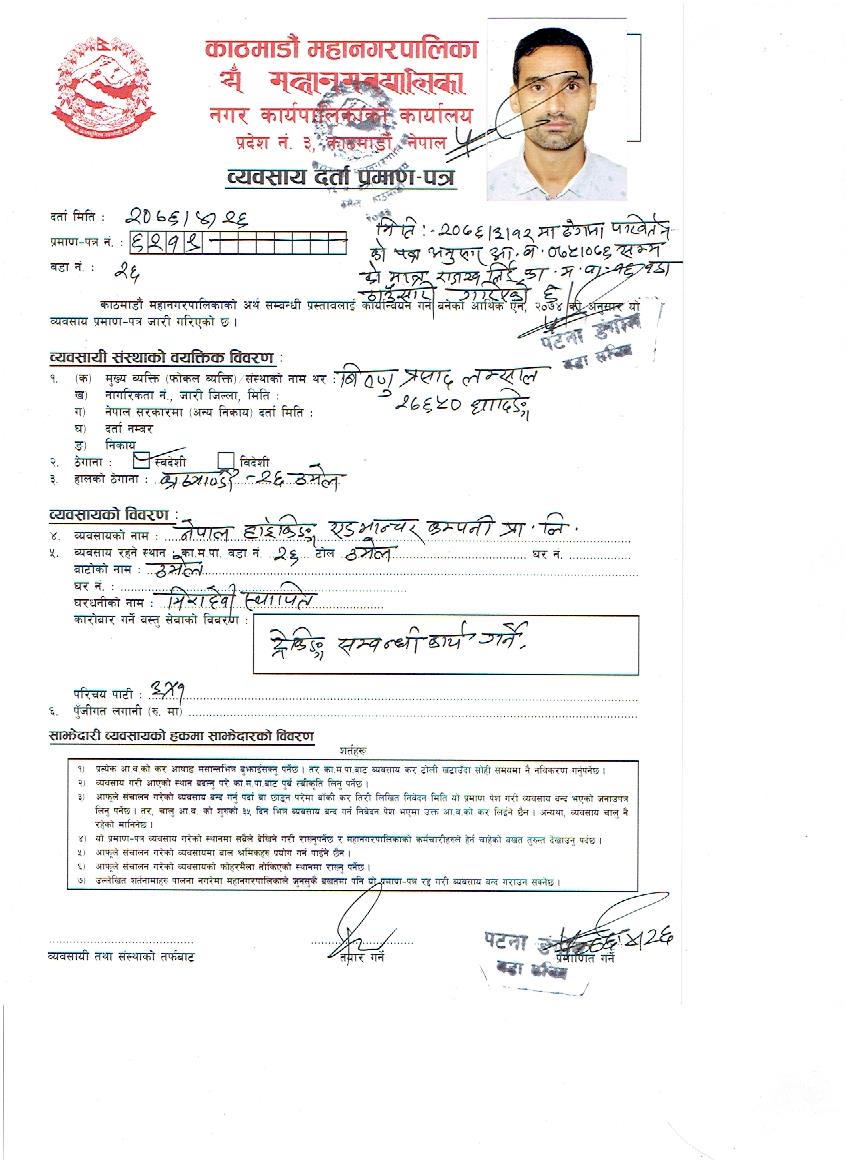 काठमाडौं महानगरपालिका
नगर कार्यपालिकाको कार्यालय
प्रदेश नं. ३, काठमाडौं, नेपाल
व्यवसाय दर्ता प्रमाण-पत्र
दर्ता मिति : २०७६।५।२६
प्रमाण-पत्र नं. : ६२११
वडा नं. : २६
मिति :- २०७६।३।१२ मा ठेगाना परिवर्तन
काठमाडौं महानगरपालिकाको अर्थ सम्बन्धी प्रस्तावलाई कार्यान्वयन गर्न बनेको आर्थिक ऐन, २०७४ को अनुसार यो
व्यवसाय प्रमाण-पत्र जारी गरिएको छ ।
पटना डंगोल
वडा सचिव
व्यवसायी संस्थाको वयक्तिक विवरण :
१. (क) मुख्य व्यक्ति (फोकल व्यक्ति) संस्थाको नाम थर : विष्णु प्रसाद लम्साल
ख) नागरिकता नं., जारी जिल्ला, मिति : २७६५० धादिङ्ग
ग) नेपाल सरकारमा (अन्य निकाय) दर्ता मिति :
घ) दर्ता नम्बर
ङ) निकाय
२. ठेगाना : स्वदेशी विदेशी
३. हालको ठेगाना : -२६ ठमेल
व्यवसायको विवरण :
४. व्यवसायको नाम : नेपाल हाइकिङ्ग एडभान्चर कम्पनी प्रा. लि.
५. व्यवसाय रहने स्थान का.म.पा. वडा नं. २६ टोल ठमेल घर नं.
बाटोको नाम : ठमेल
घर नं. :
घरधनीको नाम : मिरादेवी स्थापित
कारोबार गर्ने वस्तु सेवाको विवरण :
ट्रेकिङ्ग सम्बन्धी कार्य गर्ने.
परिचय पाटी : ३x१
६. पुँजीगत लगानी (रु. मा)
साझेदारी व्यवसायको हकमा साझेदारको विवरण
शर्तहरु
१) प्रत्येक आ.व.को कर आषाढ मसान्तभित्र बुझाईसक्नु पर्नेछ । तर का.म.पा.बाट व्यवसाय कर टोली खटाउँदा सोही समयमा नै नविकरण गर्नुपर्नेछ ।
२) व्यवसाय गरी आएको स्थान बदल्नु परे का.म.पा.बाट पुर्व स्वीकृति लिनु पर्नेछ ।
३) आफूले संचालन गरेको व्यवसाय बन्द गर्नु पर्दा वा छाड्न परेमा बाँकी कर तिरी लिखित निवेदन मिति यो प्रमाण पेश गरी व्यवसाय बन्द भएको जनाउपत्र
लिनु पर्नेछ । तर, चालु आ.व. को शुरुको ३५ दिन भित्र व्यवसाय बन्द गर्न निवेदन पेश भएमा उक्त आ.व.को कर लिईने छैन । अन्यथा, व्यवसाय चालु नै
रहेको मानिनेछ ।
४) यो प्रमाण-पत्र व्यवसाय गरेको स्थानमा सबैले देखिने गरी राख्नुपर्नेछ र महानगरपालिकाको कर्मचारीहरुले हेर्न चाहेको बखत तुरुन्त देखाउनु पर्दछ ।
५) आफूले संचालन गरेको व्यवसायमा बाल श्रमिकहरु प्रयोग गर्न पाईने छैन ।
६) आफूले संचालन गरेको व्यवसायको फोहरमैला तोकिएको स्थानमा राख्नु पर्नेछ ।
७) उल्लेखित शर्तनामाहरु पालना नगरेमा महानगरपालिकाले जुनसुकै बखतमा पनि यो प्रमाण-पत्र रद्द गरी व्यवसाय बन्द गराउन सक्नेछ ।
पटना डंगोल
वडा सचिव
व्यवसायी तथा संस्थाको तर्फबाट तयार गर्ने प्रमाणित गर्ने